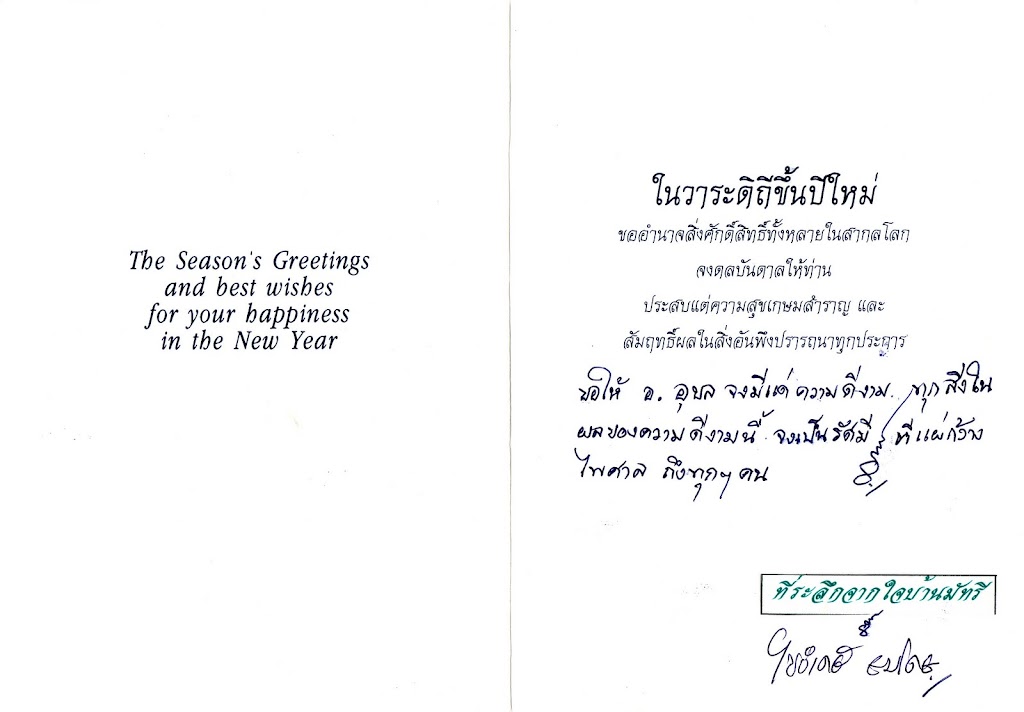 The Season's Greetings
and best wishes
for your happiness
in the New Year
ในวาระดิถีขึ้นปีใหม่
ขออำนาจสิ่งศักดิ์สิทธิ์ทั้งหลายในสากลโลก
จงดลบันดาลให้ท่าน
ประสบแต่ความสุขเกษมสำราญ และ
สัมฤทธิ์ผลในสิ่งอันพึงปรารถนาทุกประการ
ขอให้ อ. อุบล จงมีแต่ความดีงาม ทุกสิ่งใน
ผลของความดีงามนี้ จงเป็นรัศมี ที่แผ่กว้าง
ไพศาล ถึงทุกๆ คน
ที่ระลึกจากใจบ้านมัทรี